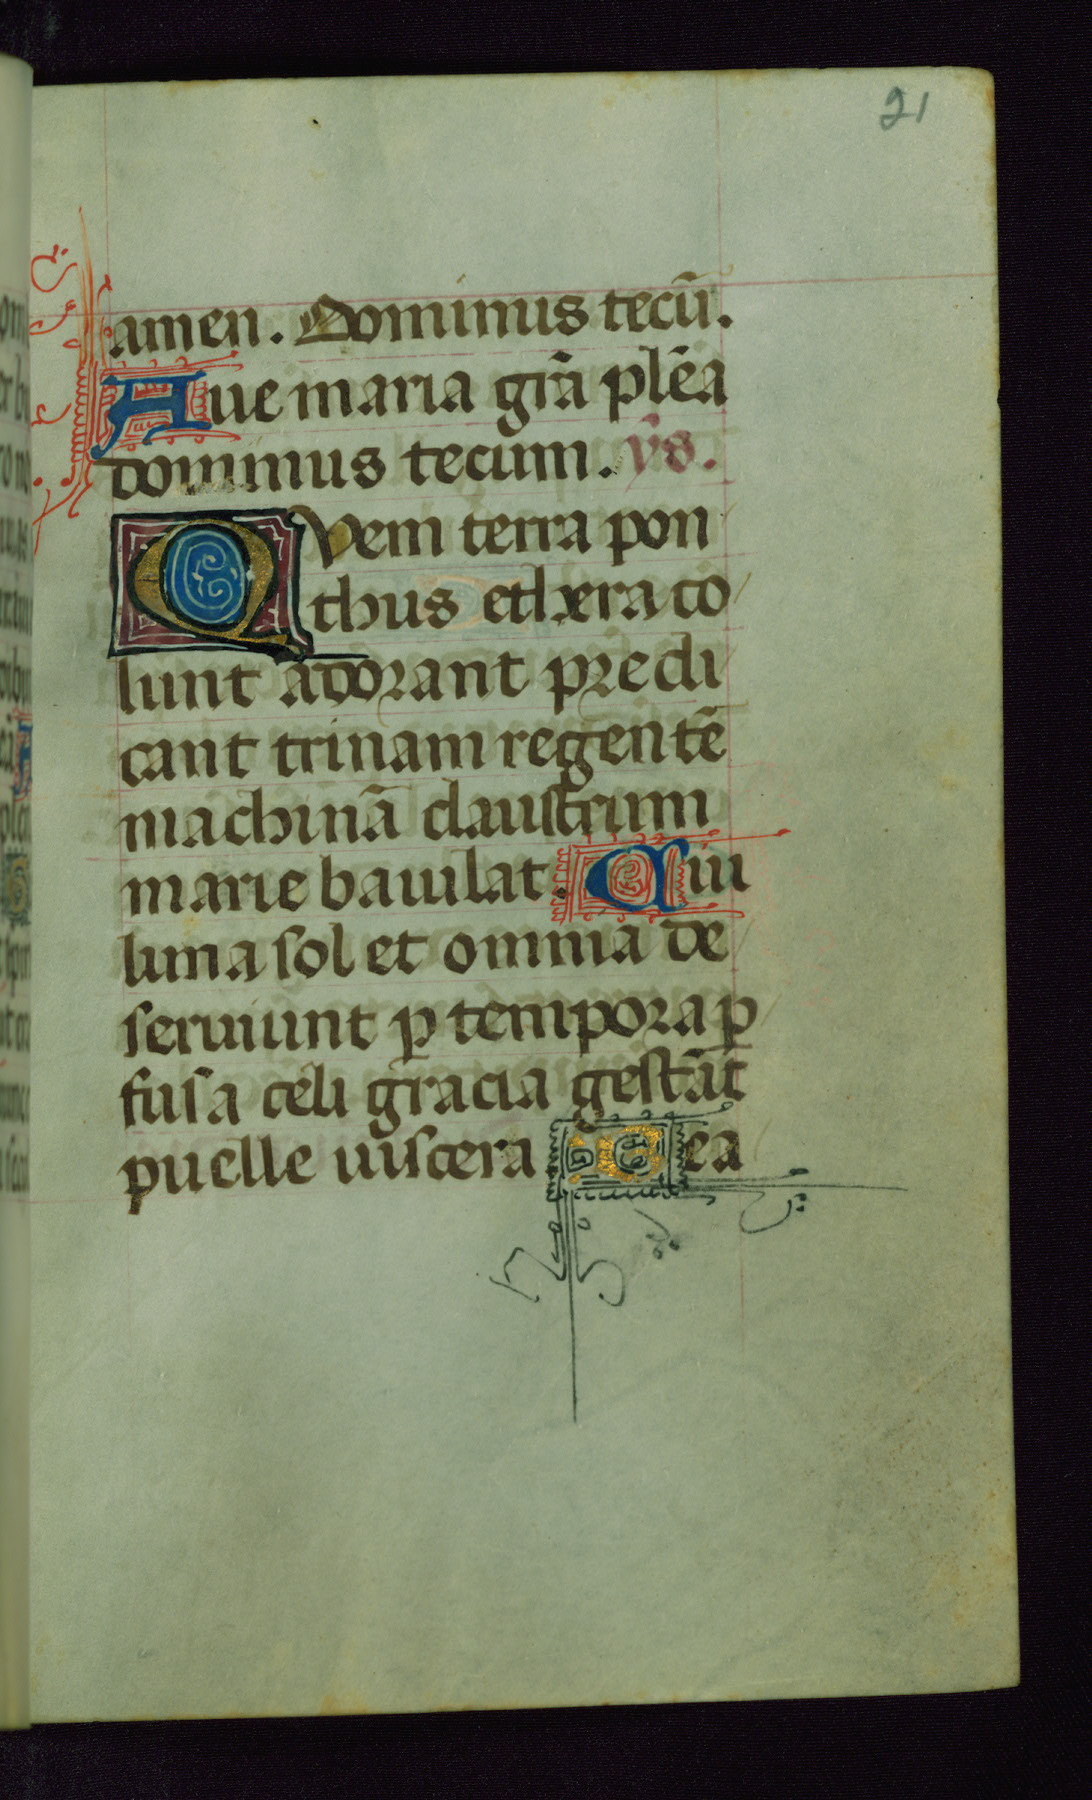 21
amen. Dominus tecū.
Aue maria grā plēa
dominus tecum. ẏs.
Quem terra pon
thus ethera co
lunt adorant predi
cant trinam regentē
machinā claustrum
marie bauulat. Cui
luna sol et omnia de
seruiunt ꝑ tempora ꝑ
fusa celi gracia gestāt
puelle uiscera Bea